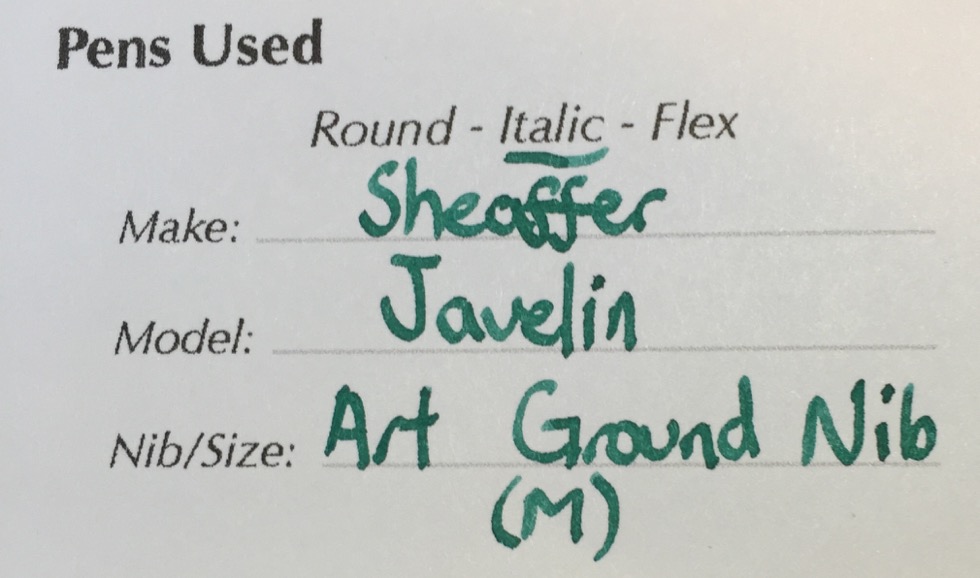 Pens Used
Round - Italic - Flex
Make: Sheaffer
Model: Javelin
Nib/Size: Art Ground Nib
(M)